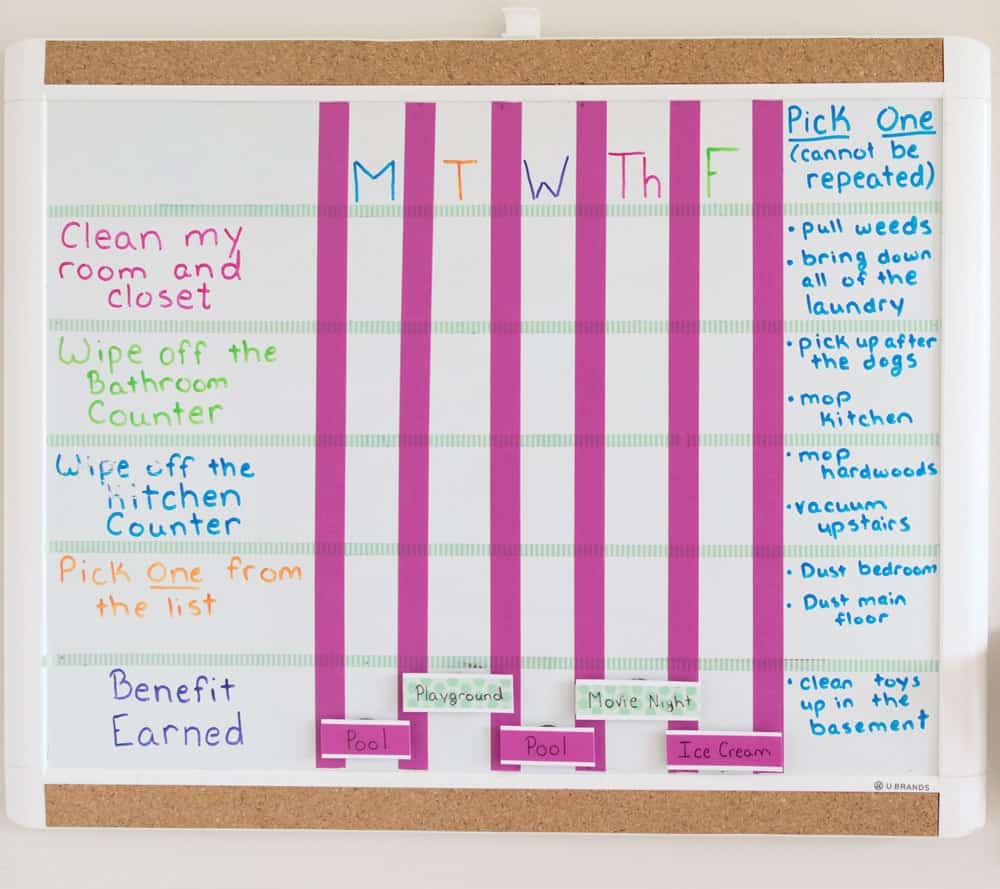 M T W Th F
Clean my
room and
closet
Wipe off the
Bathroom
Counter
Wipe off the
Kitchen
Counter
Pick One from
the list
Benefit
Earned
Pool
Playground
Pool
Movie Night
Ice Cream
Pick One
(cannot be
repeated)
• pull weeds
• bring down
all of the
laundry
• pick up after
the dogs
• mop
kitchen
• mop
hardwoods
• vacuum
upstairs
• Dust bedroom
• Dust main
floor
• clean toys
up in the
basement
U BRANDS